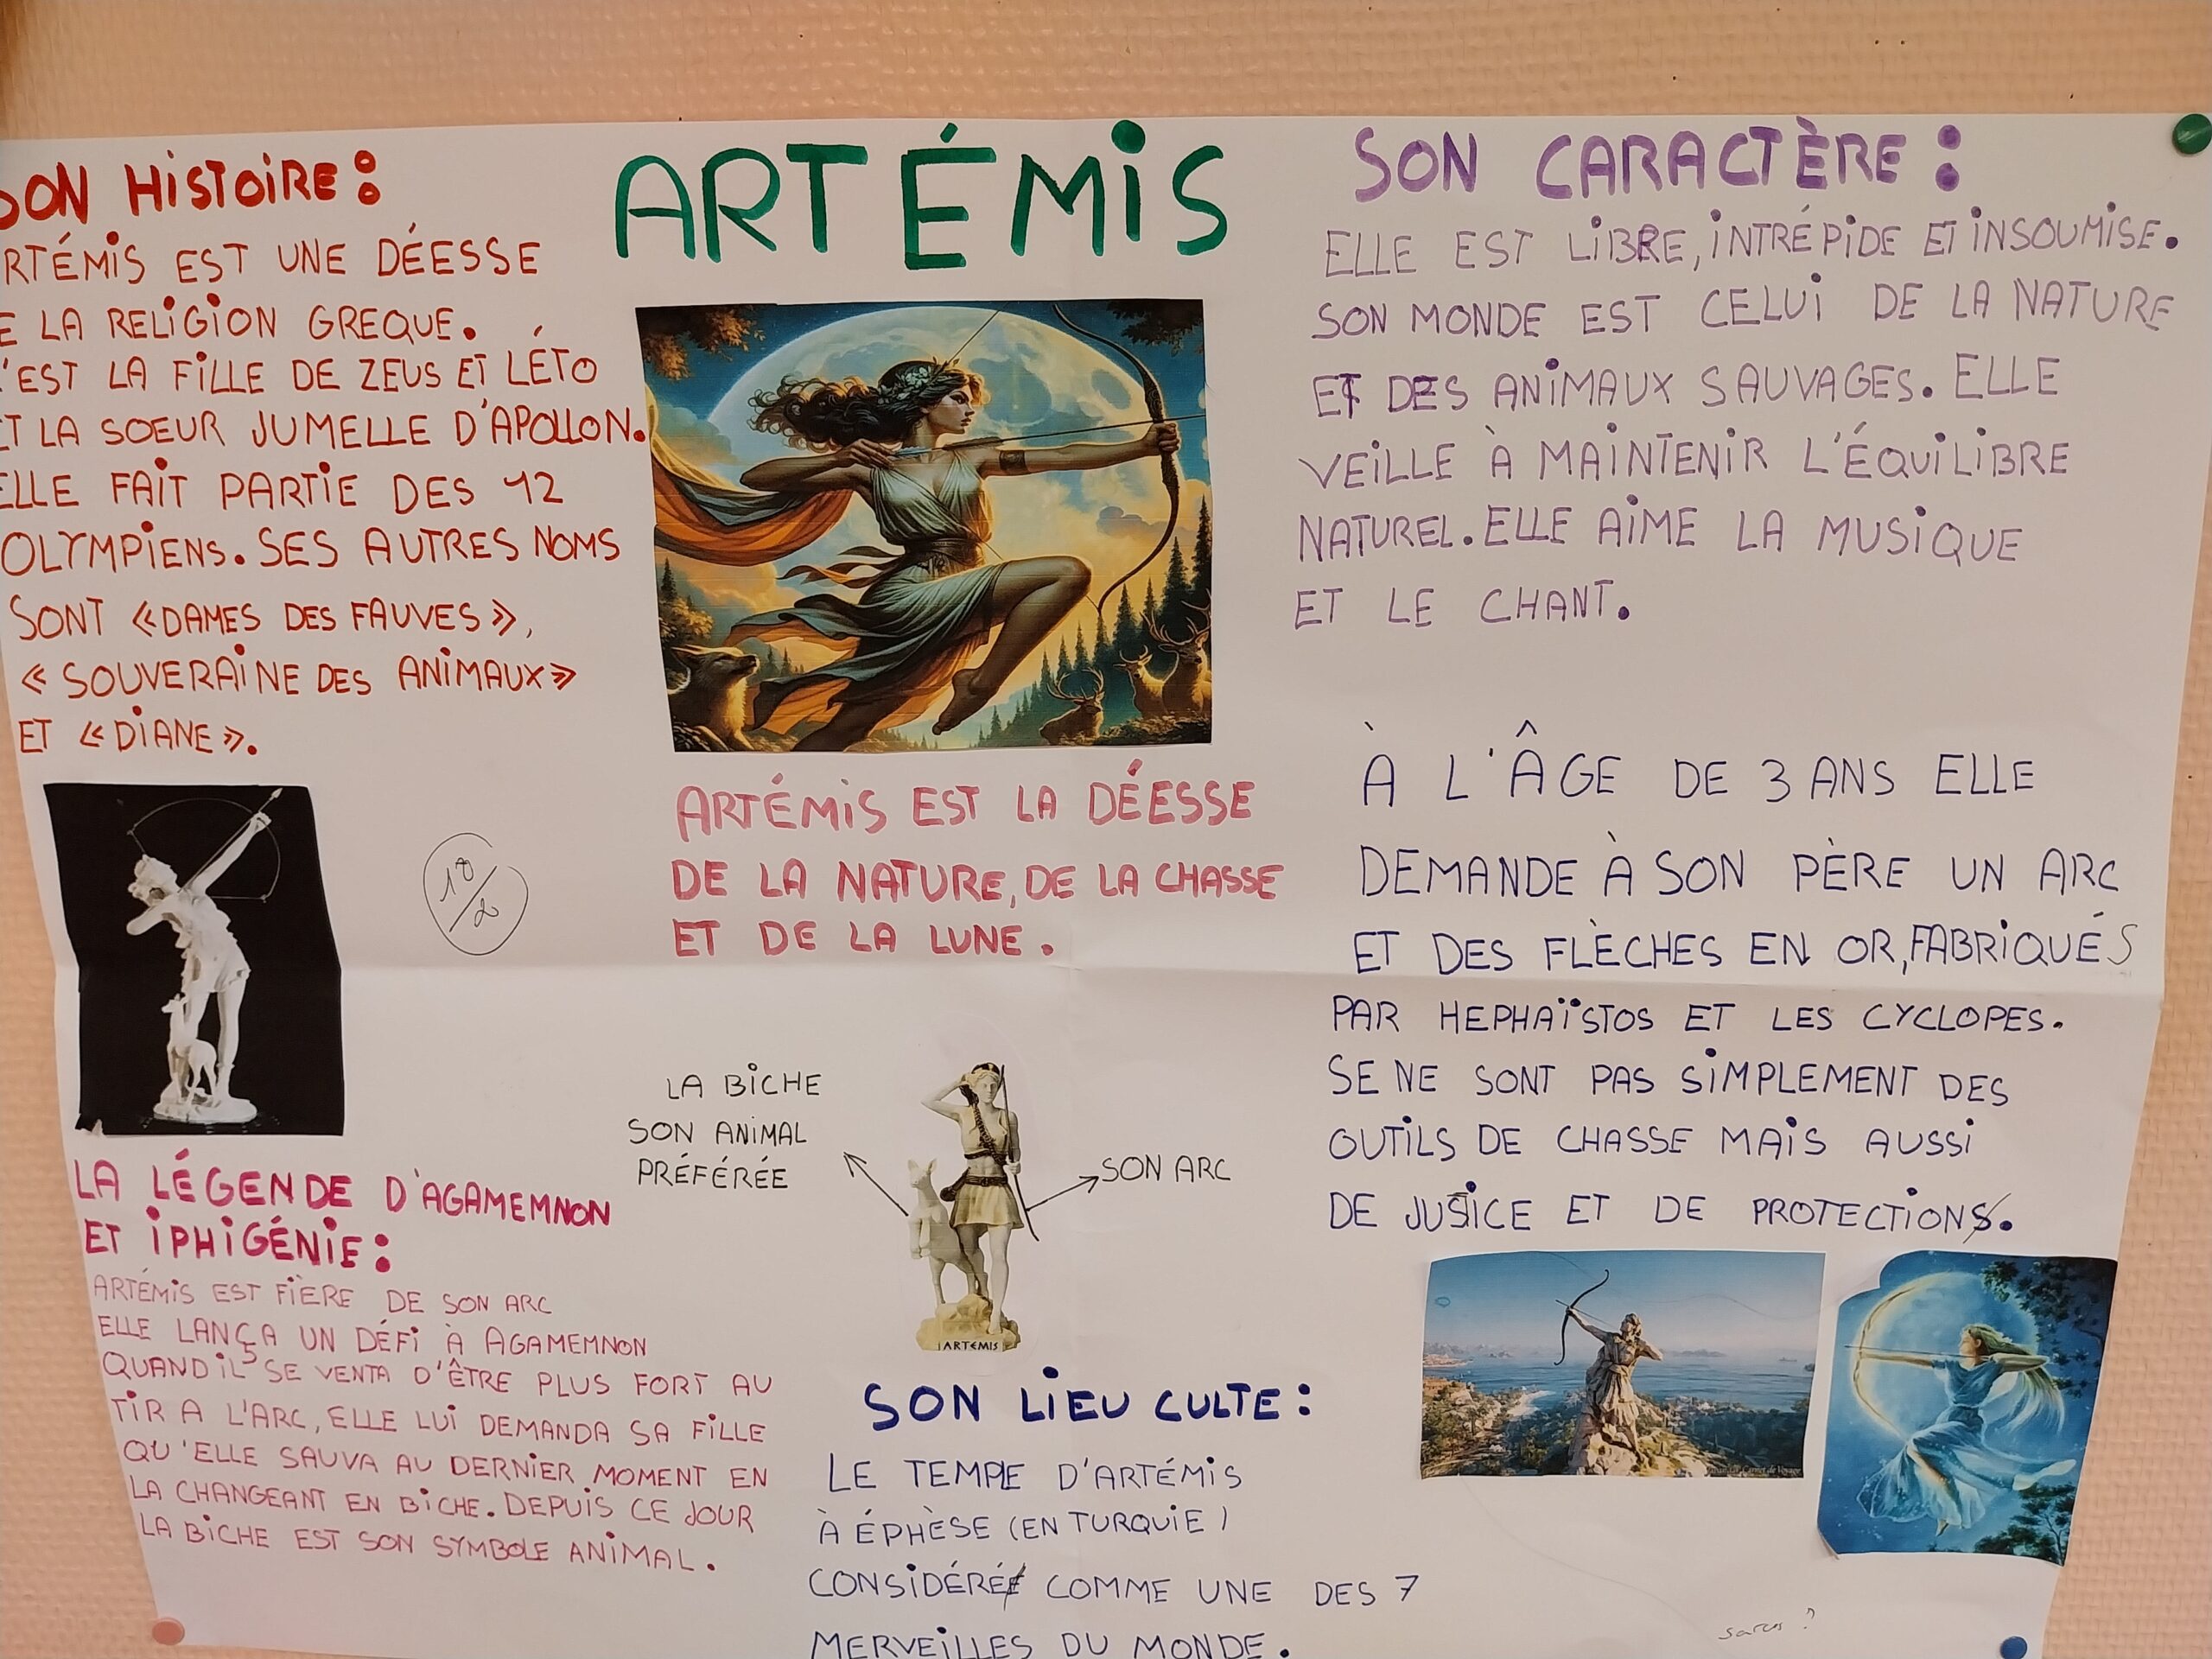 ARTÉMIS
SON HISTOIRE :
RTÉMIS EST UNE DÉESSE
E LA RELIGION GREQUE.
'EST LA FILLE DE ZEUS ET LÉTO
ET LA SOEUR JUMELLE D'APOLLON.
ELLE FAIT PARTIE DES 12
OLYMPIENS. SES AUTRES NOMS
SONT « DAMES DES FAUVES »,
« SOUVERAINE DES ANIMAUX »
ET « DIANE ».
18/2
LA LÉGENDE D'AGAMEMNON
ET IPHIGÉNIE :
ARTÉMIS EST FIÈRE DE SON ARC
ELLE LANÇA UN DÉFI À AGAMEMNON
QUAND IL SE VENTA D'ÊTRE PLUS FORT AU
TIR A L'ARC, ELLE LUI DEMANDA SA FILLE
QU'ELLE SAUVA AU DERNIER MOMENT EN
LA CHANGEANT EN BICHE. DEPUIS CE JOUR
LA BICHE EST SON SYMBOLE ANIMAL.
ARTÉMIS EST LA DÉESSE
DE LA NATURE, DE LA CHASSE
ET DE LA LUNE.
LA BICHE
SON ANIMAL
PRÉFÉRÉE
SON ARC
ARTEMIS
SON LIEU CULTE :
LE TEMPLE D'ARTÉMIS
À ÉPHÈSE (EN TURQUIE)
CONSIDÉRÉ COMME UNE DES 7
MERVEILLES DU MONDE.
SON CARACTÈRE :
ELLE EST LIBRE, INTRÉPIDE ET INSOUMISE.
SON MONDE EST CELUI DE LA NATURE
ET DES ANIMAUX SAUVAGES. ELLE
VEILLE À MAINTENIR L'ÉQUILIBRE
NATUREL. ELLE AIME LA MUSIQUE
ET LE CHANT.
À L'ÂGE DE 3 ANS ELLE
DEMANDE À SON PÈRE UN ARC
ET DES FLÈCHES EN OR, FABRIQUÉS
PAR HEPHAÏSTOS ET LES CYCLOPES.
SE NE SONT PAS SIMPLEMENT DES
OUTILS DE CHASSE MAIS AUSSI
DE JUSTICE ET DE PROTECTION.
Carnet de Voyage